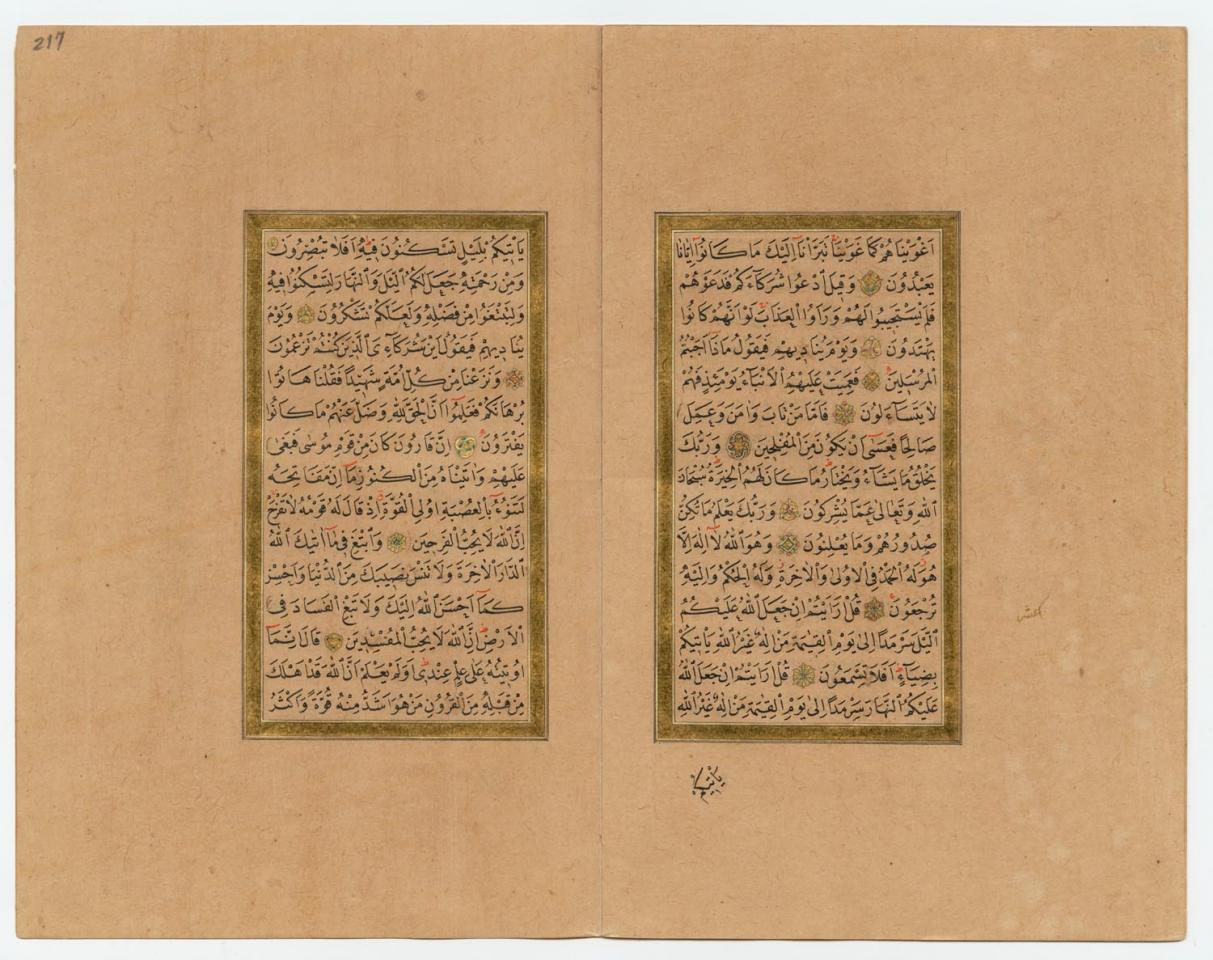 اَغْوَيْنَاهُمْ كَمَا غَوَيْنَا تَبَرَّأْنَا اِلَيْكَ مَا كَانُوا اِيَّانَا
يَعْبُدُونَ وَقِيلَ ادْعُوا شُرَكَاءَكُمْ فَدَعَوْهُمْ
فَلَمْ يَسْتَجِيبُوا لَهُمْ وَرَاَوُا الْعَذَابَ لَوْ اَنَّهُمْ كَانُوا
يَهْتَدُونَ وَيَوْمَ يُنَادِيهِمْ فَيَقُولُ مَاذَا اَجَبْتُمُ
الْمُرْسَلِينَ فَعَمِيَتْ عَلَيْهِمُ الْاَنْبَاءُ يَوْمَئِذٍ فَهُمْ
لَا يَتَسَاءَلُونَ فَاَمَّا مَنْ تَابَ وَاٰمَنَ وَعَمِلَ
صَالِحًا فَعَسٰى اَنْ يَكُونَ مِنَ الْمُفْلِحِينَ وَرَبُّكَ
يَخْلُقُ مَا يَشَاءُ وَيَخْتَارُ مَا كَانَ لَهُمُ الْخِيَرَةُ سُبْحَانَ
اللّٰهِ وَتَعَالٰى عَمَّا يُشْرِكُونَ وَرَبُّكَ يَعْلَمُ مَا تُكِنُّ
صُدُورُهُمْ وَمَا يُعْلِنُونَ وَهُوَ اللّٰهُ لَا اِلٰهَ اِلَّا
هُوَ لَهُ الْحَمْدُ فِى الْاُولٰى وَالْاٰخِرَةِ وَلَهُ الْحُكْمُ وَاِلَيْهِ
تُرْجَعُونَ قُلْ اَرَاَيْتُمْ اِنْ جَعَلَ اللّٰهُ عَلَيْكُمُ
الَّيْلَ سَرْمَدًا اِلٰى يَوْمِ الْقِيٰمَةِ مَنْ اِلٰهٌ غَيْرُ اللّٰهِ يَاْتِيكُمْ
بِضِيَاءٍ اَفَلَا تَسْمَعُونَ قُلْ اَرَاَيْتُمْ اِنْ جَعَلَ اللّٰهُ
عَلَيْكُمُ النَّهَارَ سَرْمَدًا اِلٰى يَوْمِ الْقِيٰمَةِ مَنْ اِلٰهٌ غَيْرُ اللّٰهِ
يَاْتِيكُمْ
217
يَاْتِيكُمْ بِلَيْلٍ تَسْكُنُونَ فِيهِ اَفَلَا تُبْصِرُونَ
وَمِنْ رَحْمَتِهِ جَعَلَ لَكُمُ الَّيْلَ وَالنَّهَارَ لِتَسْكُنُوا فِيهِ
وَلِتَبْتَغُوا مِنْ فَضْلِهِ وَلَعَلَّكُمْ تَشْكُرُونَ وَيَوْمَ
يُنَادِيهِمْ فَيَقُولُ اَيْنَ شُرَكَاءِىَ الَّذِينَ كُنْتُمْ تَزْعُمُونَ
وَنَزَعْنَا مِنْ كُلِّ اُمَّةٍ شَهِيدًا فَقُلْنَا هَاتُوا
بُرْهَانَكُمْ فَعَلِمُوا اَنَّ الْحَقَّ لِلّٰهِ وَضَلَّ عَنْهُمْ مَا كَانُوا
يَفْتَرُونَ اِنَّ قَارُونَ كَانَ مِنْ قَوْمِ مُوسٰى فَبَغٰى
عَلَيْهِمْ وَاٰتَيْنَاهُ مِنَ الْكُنُوزِ مَا اِنَّ مَفَاتِحَهُ
لَتَنُوءُ بِالْعُصْبَةِ اُولِى الْقُوَّةِ اِذْ قَالَ لَهُ قَوْمُهُ لَا تَفْرَحْ
اِنَّ اللّٰهَ لَا يُحِبُّ الْفَرِحِينَ وَابْتَغِ فِى مَا اٰتٰيكَ اللّٰهُ
الدَّارَ الْاٰخِرَةَ وَلَا تَنْسَ نَصِيبَكَ مِنَ الدُّنْيَا وَاَحْسِنْ
كَمَا اَحْسَنَ اللّٰهُ اِلَيْكَ وَلَا تَبْغِ الْفَسَادَ فِى
الْاَرْضِ اِنَّ اللّٰهَ لَا يُحِبُّ الْمُفْسِدِينَ قَالَ اِنَّمَا
اُوتِيتُهُ عَلٰى عِلْمٍ عِنْدِى اَوَلَمْ يَعْلَمْ اَنَّ اللّٰهَ قَدْ اَهْلَكَ
مِنْ قَبْلِهِ مِنَ الْقُرُونِ مَنْ هُوَ اَشَدُّ مِنْهُ قُوَّةً وَاَكْثَرُ